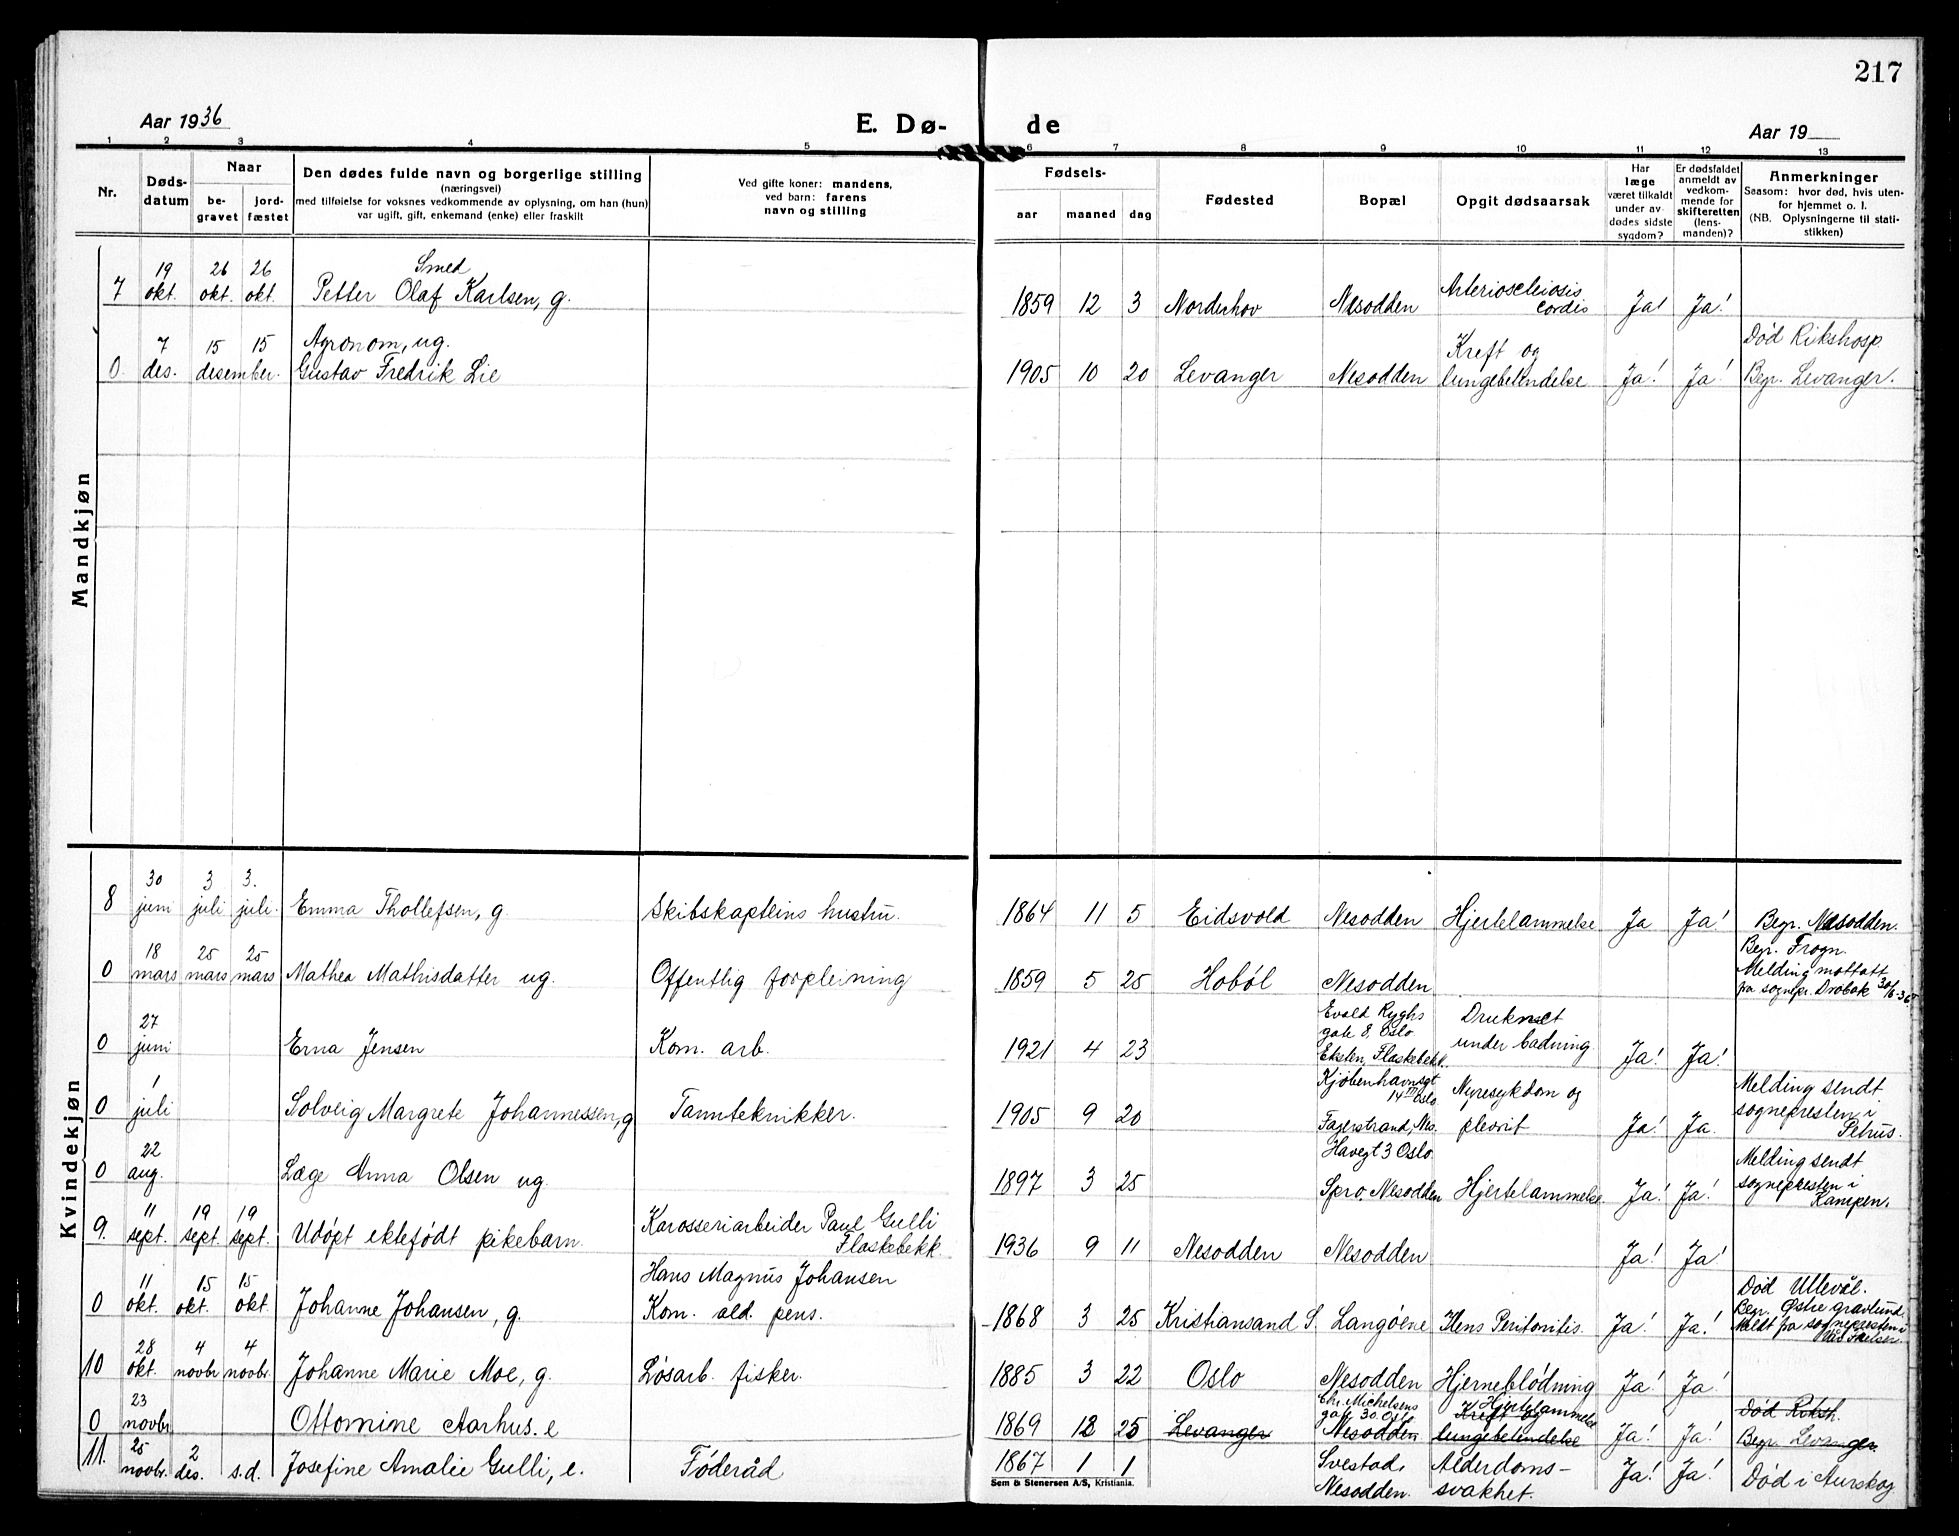 217
Aar 1936
E. Dø-
de
Aar 19
1 2 3 4 5 6 7 8 9 10 11 12 13
Nr.
Døds-
datum
Naar
be-
gravet
jord-
fæstet
Den dødes fulde navn og borgerlige stilling
(næringsvei)
med tilføielse for voksnes vedkommende av oplysning, om han (hun)
var ugift, gift, enkemand (enke) eller fraskilt
Ved gifte koner: mandens,
ved barn: farens
navn og stilling
Fødsels-
aar maaned dag
Fødested
Bopæl
Opgit dødsaarsak
Har
læge
været tilkaldt
under av-
dødes sidste
sygdom?
Er dødsfaldet
anmeldt av
vedkom-
mende for
skifteretten
(lens-
manden)?
Anmerkninger
Saasom: hvor død, hvis uten-
for hjemmet o. l.
(NB. Oplysningerne til stati-
stikken)
Mandkjøn
7 19 okt. 26 okt. 26 okt.
Smed
Petter Olaf Karlsen, g.
1859 12 3 Norderhov Nesodden
Arteriosclerosis
cordis
Ja! Ja!
0. 7 des. 15 15 desember.
Agronom, ug.
Gustav Fredrik Lie
1905 10 20 Levanger Nesodden
Kreft og
lungebetendelse
Ja! Ja!
Død Rikshosp.
Begr. Levanger.
Kvindekjøn
8 30 juni 3 juli 3. juli.
Emma Thollefsen, g.
Skibskapteins hustru.
1864 11 5 Eidsvold Nesodden Hjertelammelse Ja Ja!
Begr. Nesodden.
0 18 mars 25 mars 25 mars
Mathea Mathisdatter ug.
Offentlig forpleining
1859 5 25 Hobøl Nesodden
Begr. Frogn.
Melding mottatt
fra sognepr. Drøbak 30/6-36
0 27 juni
Erna Jensen
Kom. arb.
1921 4 23
Evald Ryghs
gate 8, Oslo
Eksten, Flaskebekk.
Druknet
under badning.
Ja! Ja!
0 1 juli
Solveig Margrete Johannessen, g
Tannteknikker.
1905 9 20
Kjøbenhavnsgt
14 III Oslo
Fagerstrand, Nes.
Nyresykdom og
plevrit
Ja! Ja.
Melding sendt
sognepresten i
Petrus.
0 22 aug.
Læge Anna Olsen ug.
1897 3 25
Havegt 3 Oslo.
Spro, Nesodden
Hjertelammelse
Ja! Ja!
Melding sendt
sognepresten i
Kampen.
9. 11 sept. 19 sept. 19 sept.
Udøpt ektefødt pikebarn.
Karosseriarbeider Paul Gulli
Flaskebekk
1936 9 11 Nesodden Nesodden Ja! Ja!
0 11 okt. 15 okt. 15 okt.
Johanne Johansen, g.
Hans Magnus Johansen
Kom. ald. pens.
1868 3 25 Kristiansand S. Langøene Ilens Peritonitis. Ja! Ja!
Død Ullevål.
Begr. Østre gravlund.
Meldt fra sognepresten i
10 28 okt. 4 novbr 4 novbr.
Johanne Marie Moe, g.
Løsarb. fisker.
1885 3 22 Oslo Nesodden Hjerneblødning Ja! Ja!
0 23 novbr
Ottomine Aarhus. e
1869 12 25 Levanger
Chr. Michelsens
gate 30. Oslo
Nesodden
Hjertelammelse
Kreft og
lungebetendelse
Ja! Ja!
Død Riksh.
Begr. Levanger
11. 25 novbr. 2 des. s.d.
Josefine Amalie Gulli, e.
Føderåd
1867 1 1
Svestad,
Nesodden.
Alderdoms-
svakhet.
Ja! Ja!
Død i Aurskog
Sem & Stenersen A/S, Kristiania.